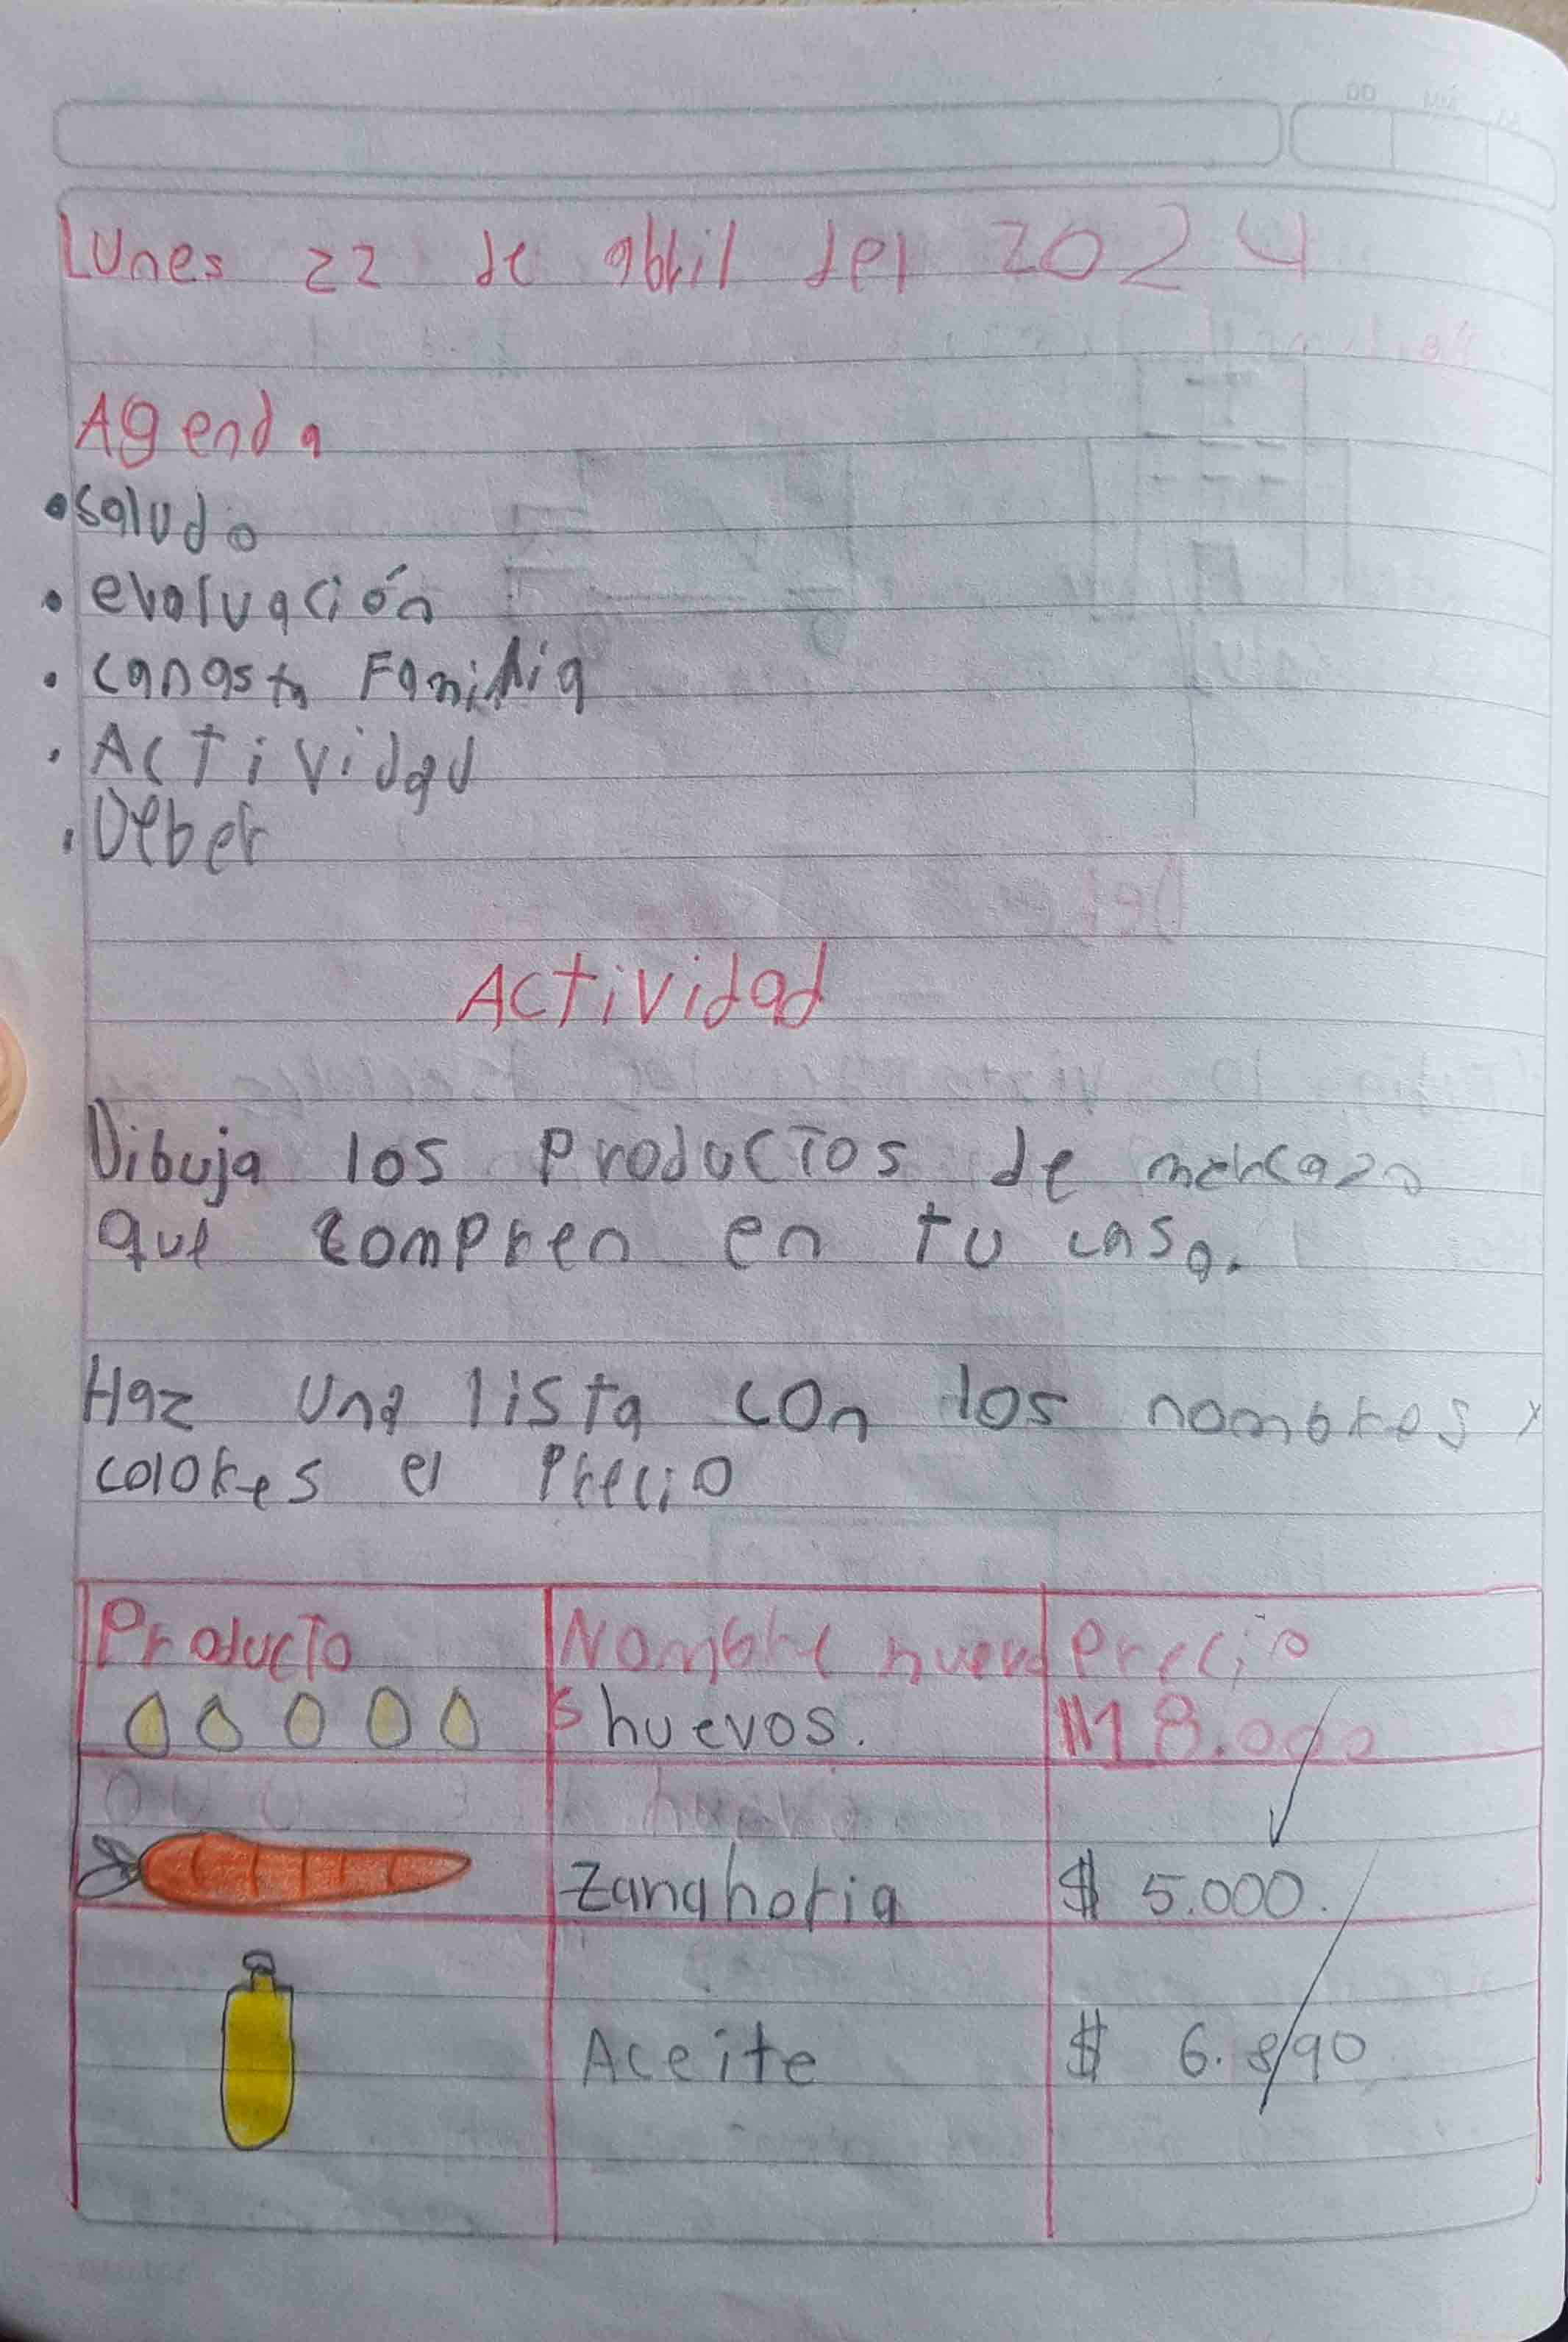 Lunes 22 de abril del 2024
Agenda
• saludo
• evaluación
• canasta Familia
• Actividad
• Deber
Actividad
Dibuja los productos de mercado
que compren en tu casa.
Haz una lista con los nombres y
colores el Precio
Producto Nombre Precio
huevos. $18.000
Zanahoria $ 5.000.
Aceite $ 6.890